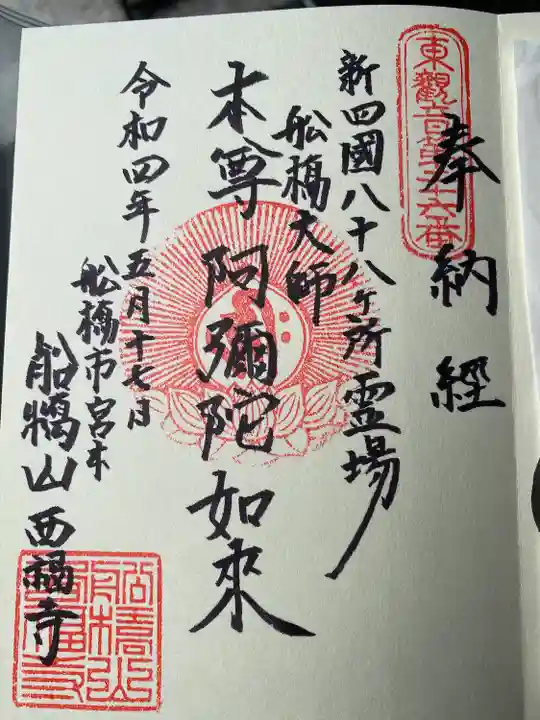 東觀音第三十六番
奉納経
新四國八十八ヶ所霊場
船橋大師
本尊阿彌陀如來
令和四年五月十七日
船橋市宮本
船橋山西福寺